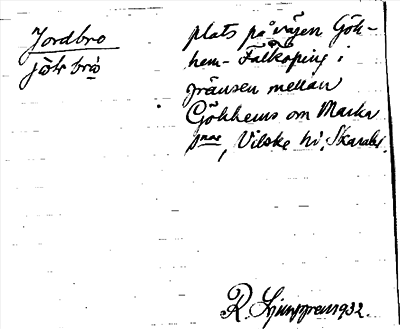 Jordbro
jotr bro
plats på vägen Gök-
hem-Falköping i
gränsen mellan
Gökhems om Marka
snar, Vilske hd, Skarabg.
R. Ljunggren 1932.